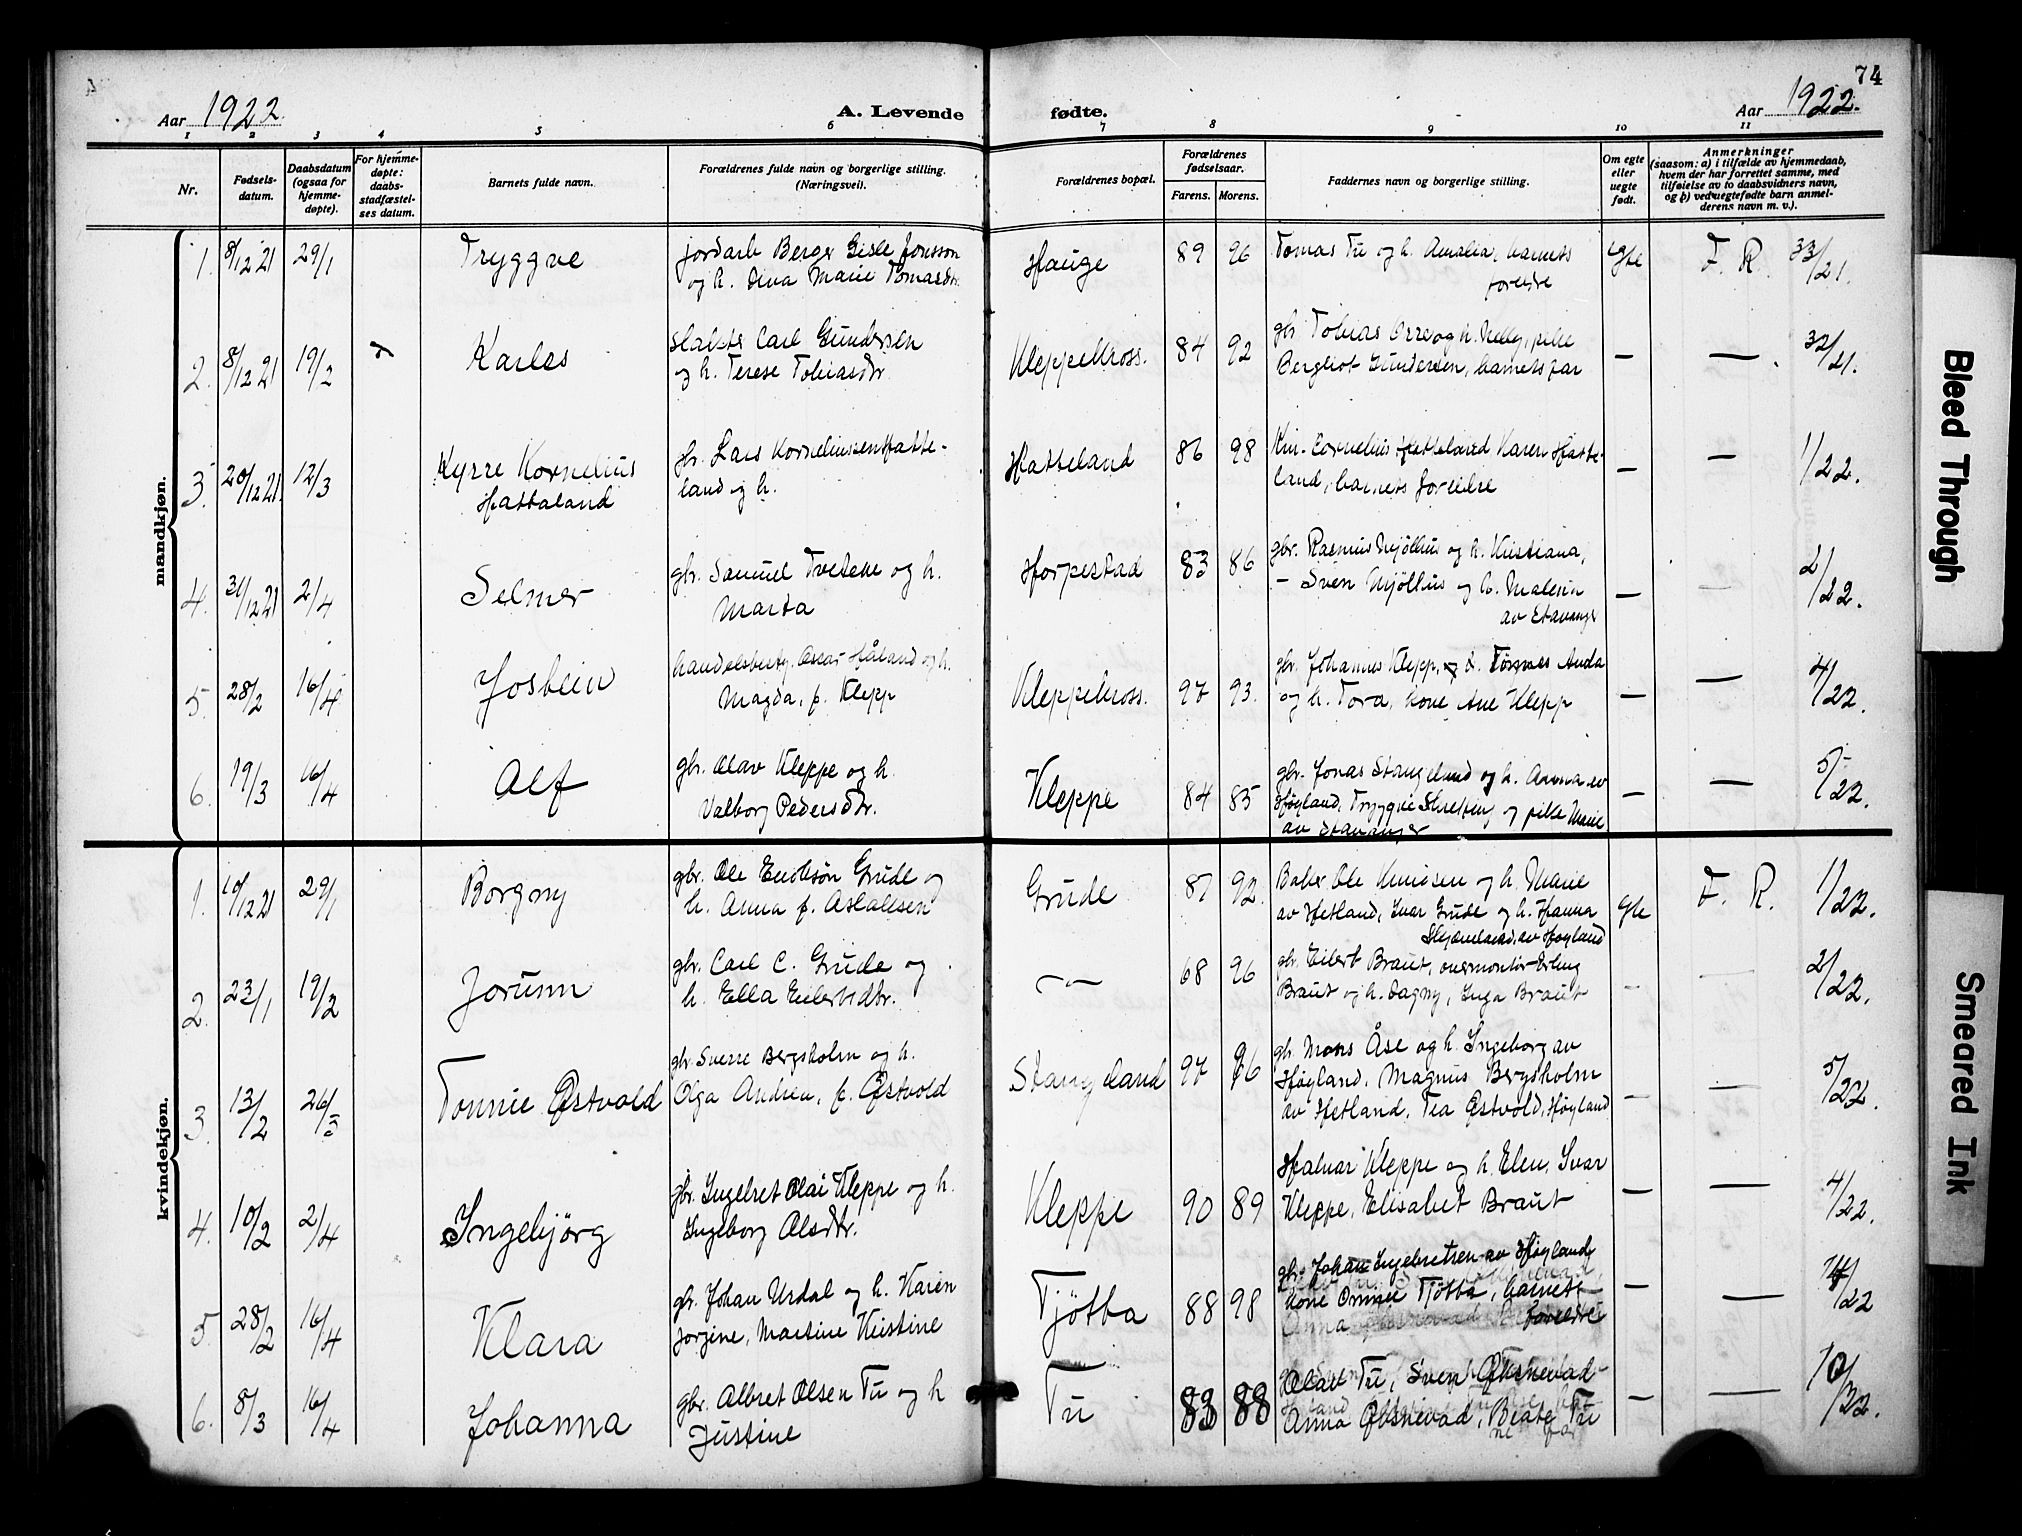 74
Aar 1922.
A. Levende
fødte.
Aar 1922.
1 2 3 4 5 6 7 8 9 10 11
Nr.
Fødsels-
datum.
Daabsdatum
(ogsaa for
hjemme-
døpte).
For hjemme-
døpte:
daabs-
stadfæstel-
ses datum.
Barnets fulde navn.
Forældrenes fulde navn og borgerlige stilling.
(Næringsvei).
Forældrenes bopæl.
Forældrenes
fødselsaar.
Farens. Morens.
Faddernes navn og borgerlige stilling.
Om egte
eller
uegte
født.
Anmerkninger
(saasom: a) i tilfælde av hjemmedaab,
hvem der har forrettet samme, med
tilføielse av to daabsvidners navn,
og b) ved uegtefødte barn anmel-
derens navn m. v.).
mandkjøn.
1. 8/12 21 29/1 Tryggve jordarb Berge Gisle Jonsson Hauge 89 96 Tomas Tu og h. Amalia, barnets gte F. R. 33/21.
og h. Dina Marie Tomasdtr. foreldre
2. 8/12 21 19/2 Karles Carl Gundersen Kleppekross. 84 92 gbr. Tobias Orre og h. Nelly, pike — — 32/21.
og h. Terese Tobiasdtr. Bergliot Gundersen, barnets far
3. 20/12 21. 12/3 Kyrre Kornelius gbr. Lars Korneliussen Hatte- Hatteland 86 98 Cornelius Hatteland Karen Hatte- — — 1/22.
Hattaland land og h. land, barnets foreldre
4. 31/12 21 2/4 Selmer gbr. Samuel Tvetene og h. Horpestad 83 86 gbr. Rasmus Njølhus og h. Kristiana, — — 2/22.
Marta — Sven Njølhus og h. Malena
av Stavanger
5. 28/2 16/4 Josbein handelsbesty. Oscar Håland og h. Kleppekross. 97 93. gbr. Johannes Klepp, Tønnes Anda — — 4/22.
Magda, f. Klepp og h. Tora, kone Ane Klepp
6. 19/3 16/4 Alf gbr. Olav Kleppe og h. Kleppe 84 85 gbr. Jonas Stangeland og h. Anna av — — 5/22.
Valborg Pedersdtr. Høyland, Tryggve og pike Marie
av Stavanger
kvindekjøn.
1. 10/12 21 29/1 Borgny gbr. Ole Grude og Grude 87 92. Ole Knudsen og h. Marie gte F. R. 1/22.
h. Anna f. Aslaksen av Hetland, Ivar Grude og h. Hanna
av Høyland
2. 23/1 19/2 Jorunn gbr. Carl C. Grude og —"— 68 96 gbr. Eilert Braut, Erling — — 2/22.
h. Ella Eilertsdtr. Braut og h. Dagny, Inga Braut
3. 13/2 26/3 Tonnie Østvold gbr. Sverre Bergsholm og h. Stangeland 97 96 gbr. Mons Åse og h. Ingeborg av — — 5/22.
Olga Andrea, f. Østvold Høyland, Magnus Bergsholm
av Hetland, Tea Østvold, Høyland
4. 10/2 2/4 Ingebjörg gbr. Ingebret Olai Kleppe og h. Kleppe 90 89 Halvar Kleppe og h. Elen, Ivar — — 4/22.
Ingeborg Olsdtr. Kleppe, Elisabet Braut
5 28/2 16/4 Klara gbr. Johan Urdal og h. Karen Tjøtta 88 98 gbr. Johan Ingebretsen av Høyland, — — /22
Jorgine, Martine Kristine kone Tjøtta, barnets
foreldre
6. 8/3 16/4 Johanna gbr. Albret Olsen Tu og h Tu 83 88 Olav Tu, Sven Øksnevad — — 10/22.
Justine Anna Øksnevad, Beate Tu
Bleed Through
Smeared Ink